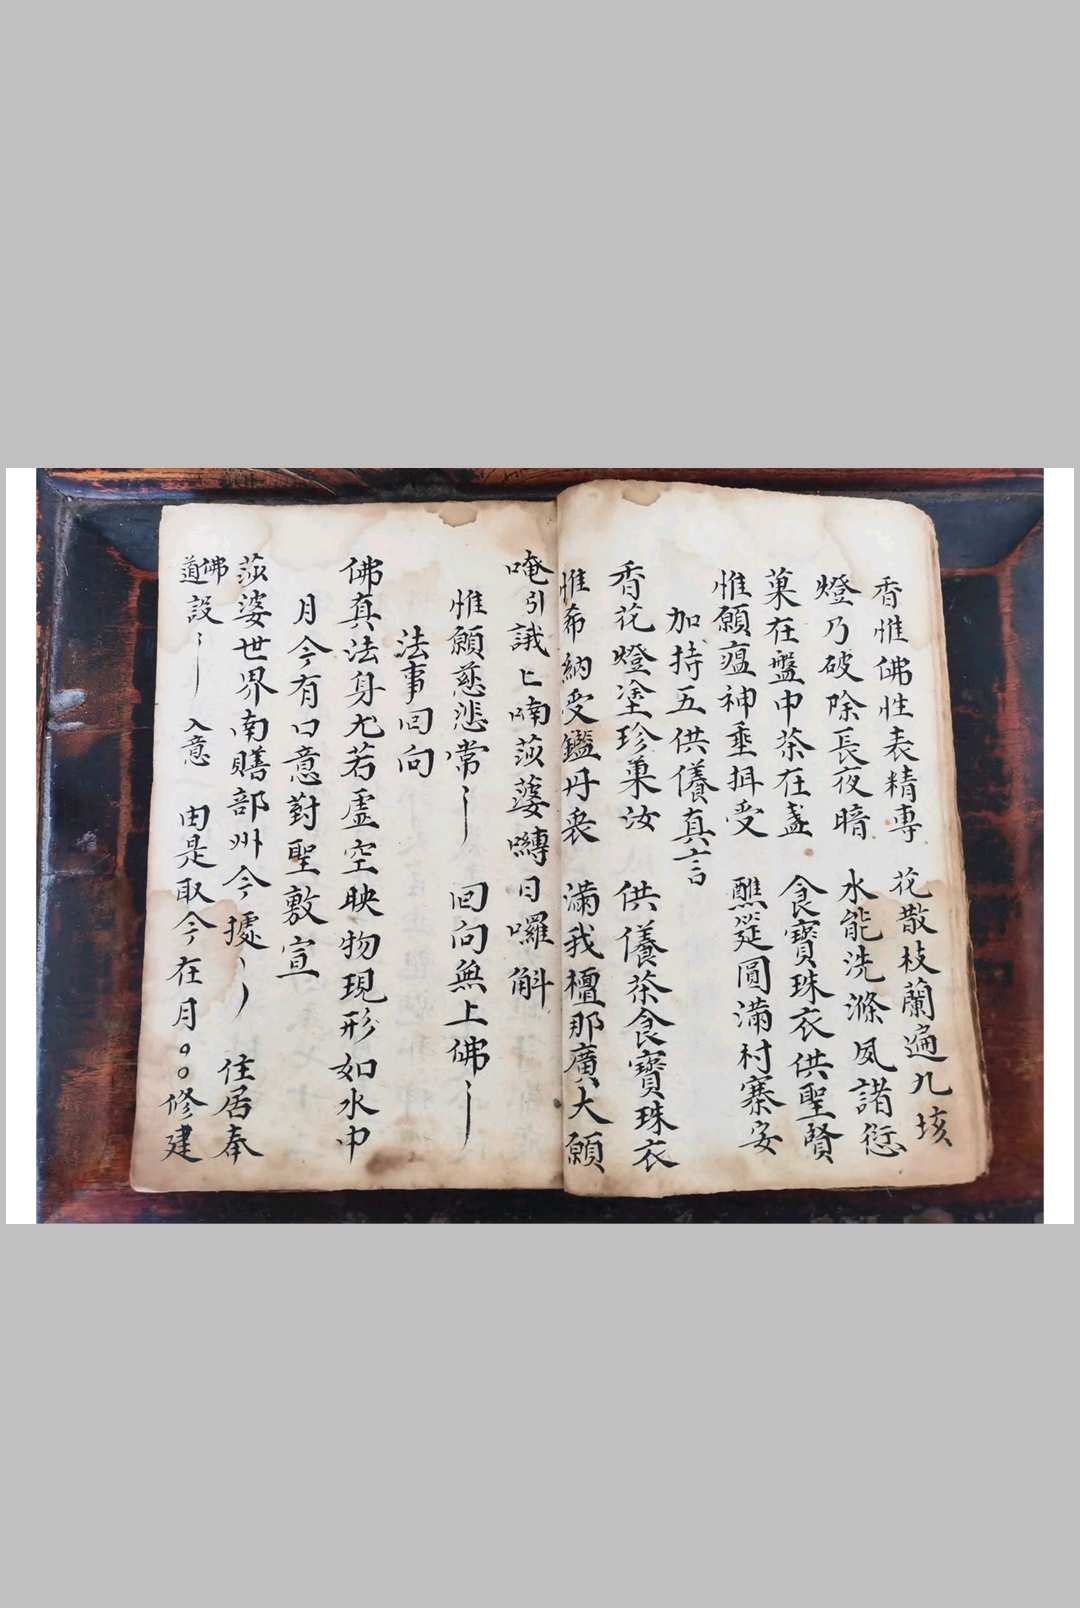 香惟佛性表精專　花散枝蘭遍九垓
燈乃破除長夜暗　水能洗滌夙諸愆
菓在盤中茶在盞　食寶珠衣供聖賢
惟願瘟神垂揖受　醮筵圓滿村寨安
加持五供儀真言
香花燈塗珍菓汝　供儀茶食寶珠衣
惟希納受鑑丹衷　滿我檀那廣大願
唵引誐匕喃莎蓡嚩日囉斛
惟願慈悲常　回向無上佛
法事回向
佛真法身尤若虛空映物現形如水中
月今有口意對聖敷宣
莎婆世界南贍部州今據　住居奉
佛道設　入意　由是取今在月。。修建